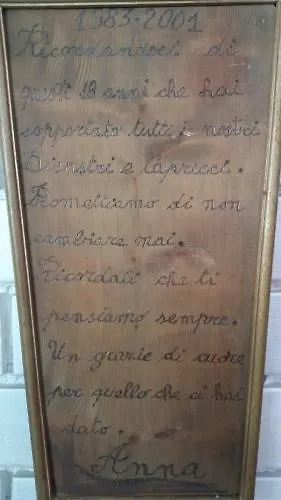 1983-2001
Ricordandoci di
questi 18 anni che hai
sopportato tutti i nostri
Disastri e Capricci.
Prometiamo di non
cambiare mai.
Ricordati che ti
pensiamo sempre.
Un grazie di cuore
per quello che ci hai
dato.
Anna